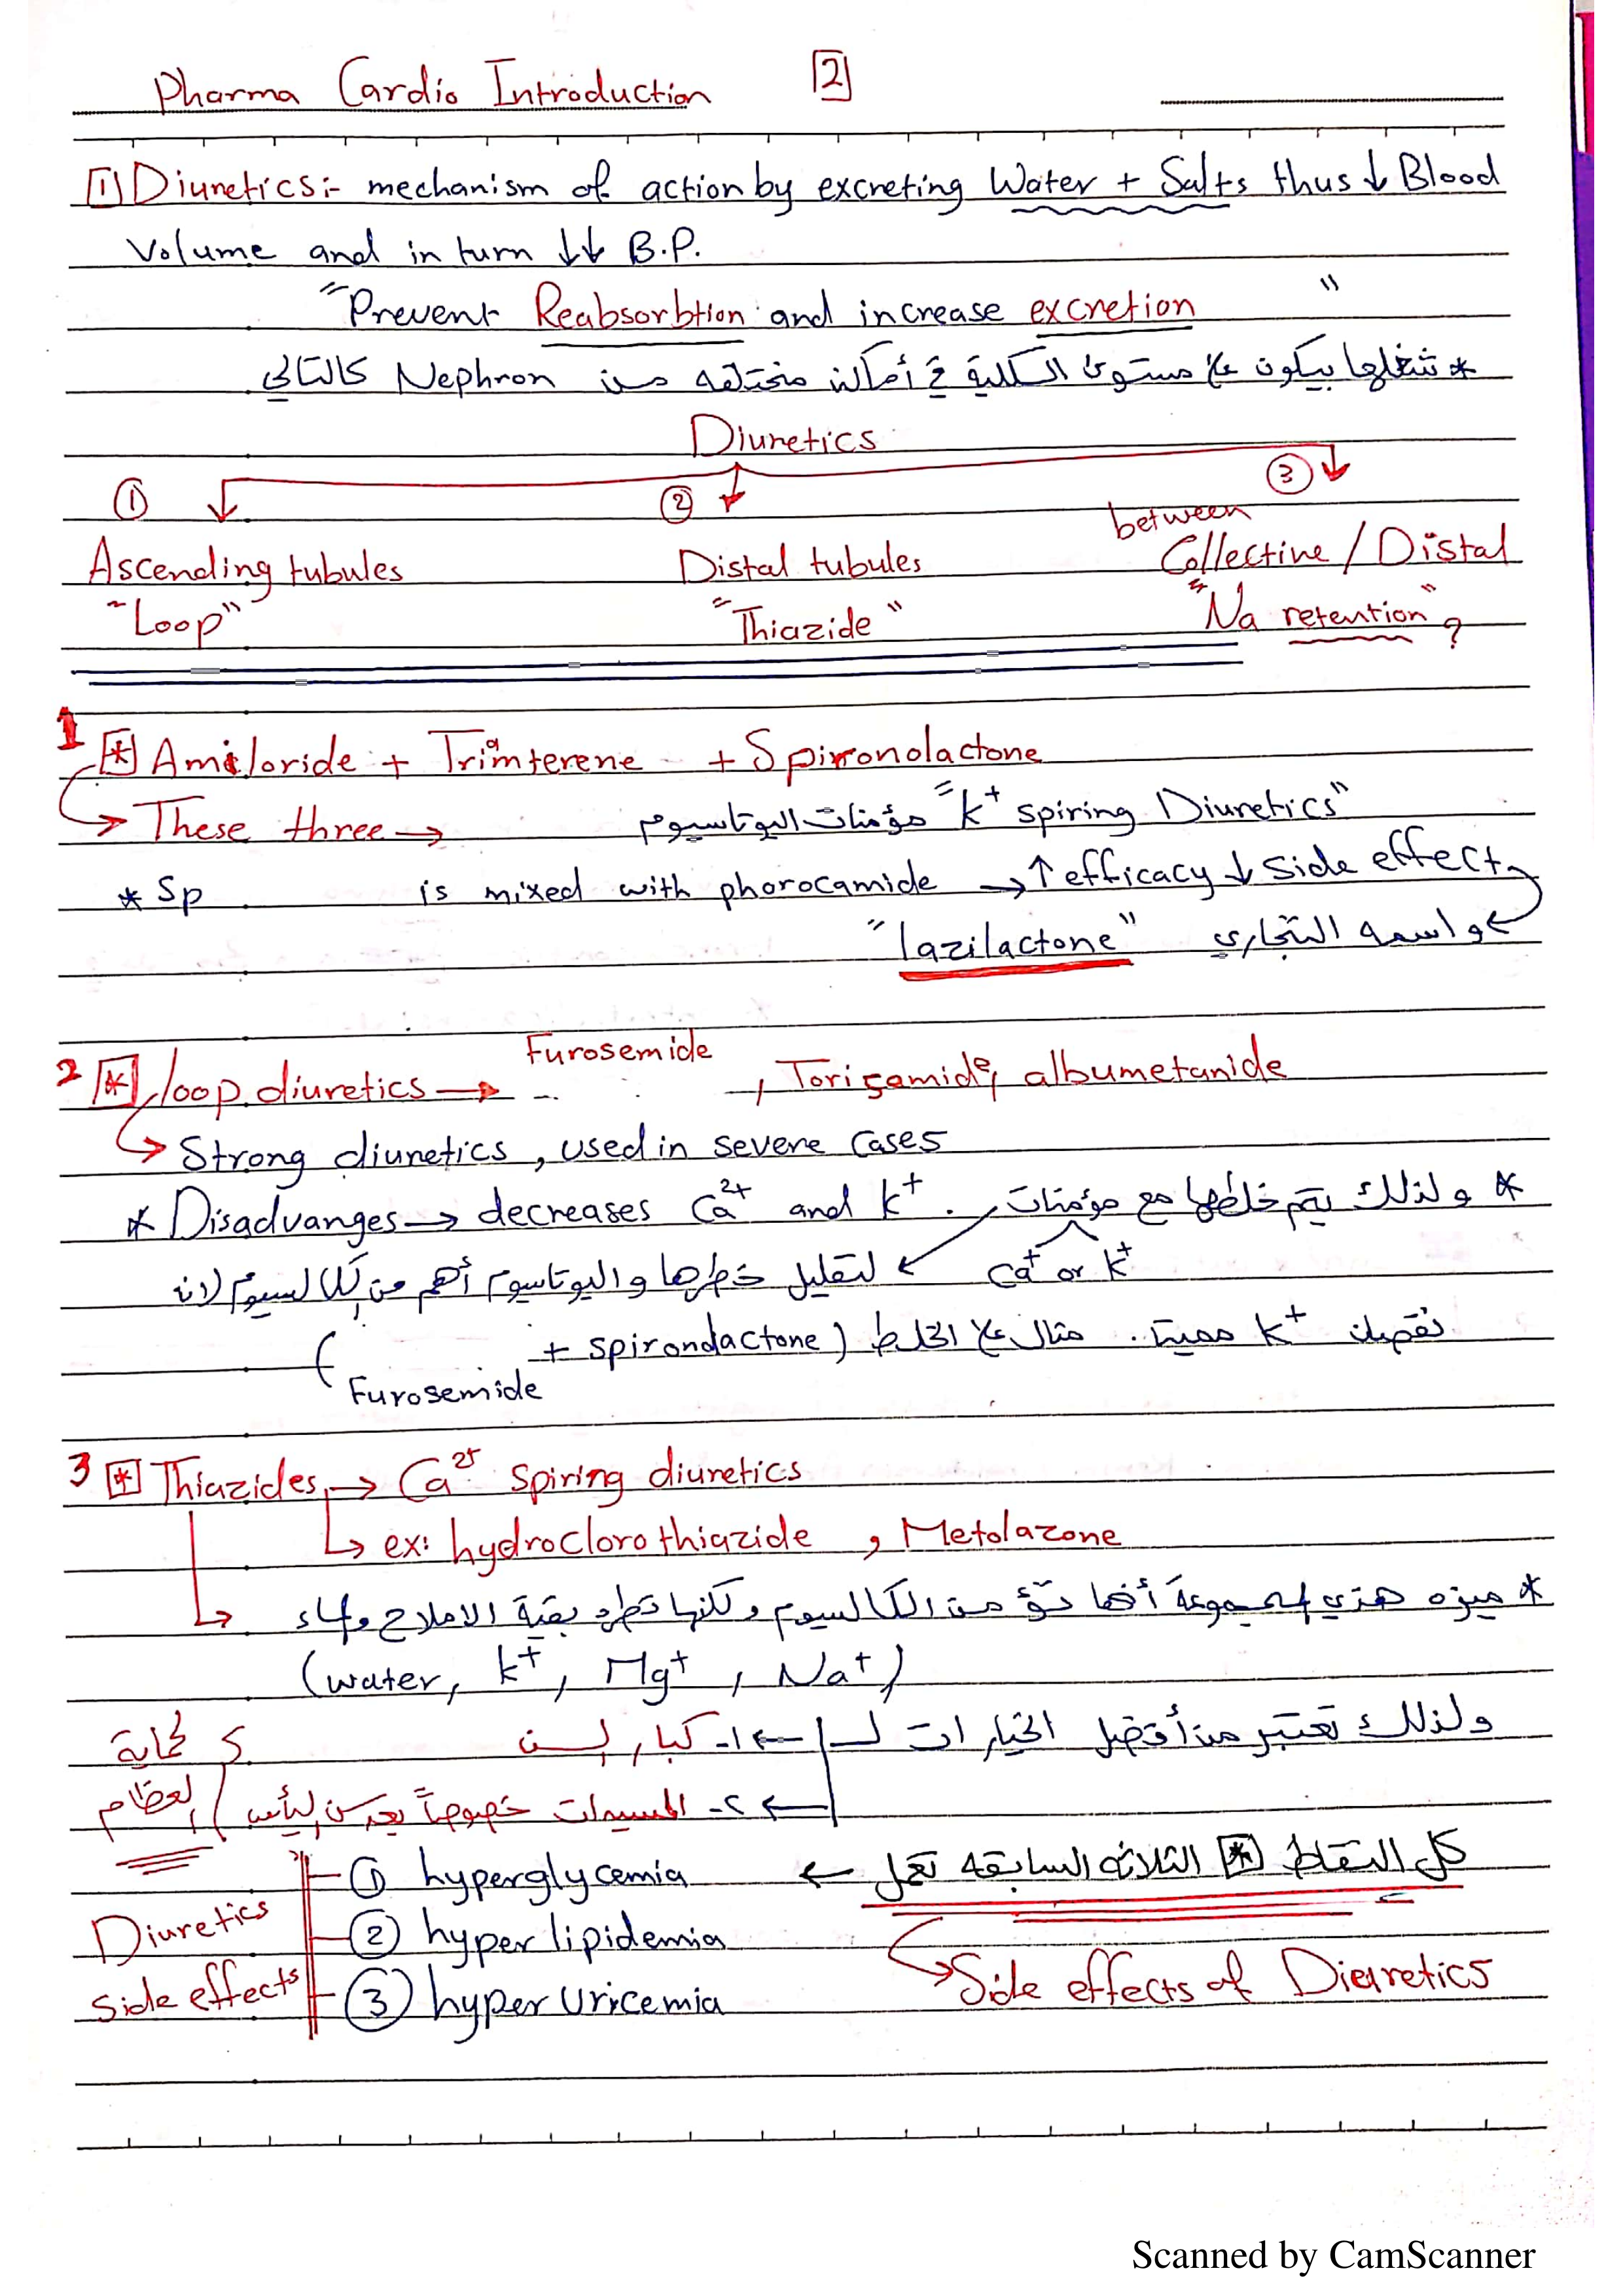 Pharma Cardio Introduction 2
1 Diuretics:- mechanism of action by excreting Water + Salts thus ↓ Blood
Volume and in turn ↓↓ B.P.
"Prevent Reabsorbtion and increase excretion"
* شغلها بيكون على مستوى الكلية في أماكن مختلفه من Nephron كالتالي
Diuretics
① ② ③
Ascending tubules Distal tubules between Collective / Distal
"Loop" "Thiazide" "Na retention"?
1 * Amiloride + Triamterene + Spironolactone
These three → مؤمنات البوتاسيوم "K+ spiring Diuretics"
* Sp is mixed with phorocamide → ↑ efficacy ↓ Side effect
و اسمه التجاري "lazilactone"
2 * loop diuretics → Furosemide , Torisamide, albumetanide
Strong diuretics, used in severe Cases
* Disadvanges → decreases Ca2+ and K+. * ولذلك يتم خلطها مع مؤمنات
Ca+ or K+ لتقليل خطرها والبوتاسيوم أهم من الكالسيوم لان
نقصان K+ مميت. مثال على الخلط (spironolactone +
Furosemide)
3 * Thiazides → Ca2+ Spiring diuretics
ex: hydroclorothiazide , Metolazone
* ميزه هذي المجموعة أنها تؤمن الكالسيوم ولكنها تطرد بقية الاملاح والماء
(water, K+, Mg+, Na+)
ولذلك تعتبر من أفضل الخيارات لـ ← ١- كبار السن
← ٢- المسيدات خصوصاً بعد سن اليأس
لحماية
العظام
كل النقاط * الثلاثه السابقه تعمل ←
Side effects of Diuretics
Diuretics
side effects
① hyperglycemia
② hyper lipidemia
③ hyper Uricemia
Scanned by CamScanner